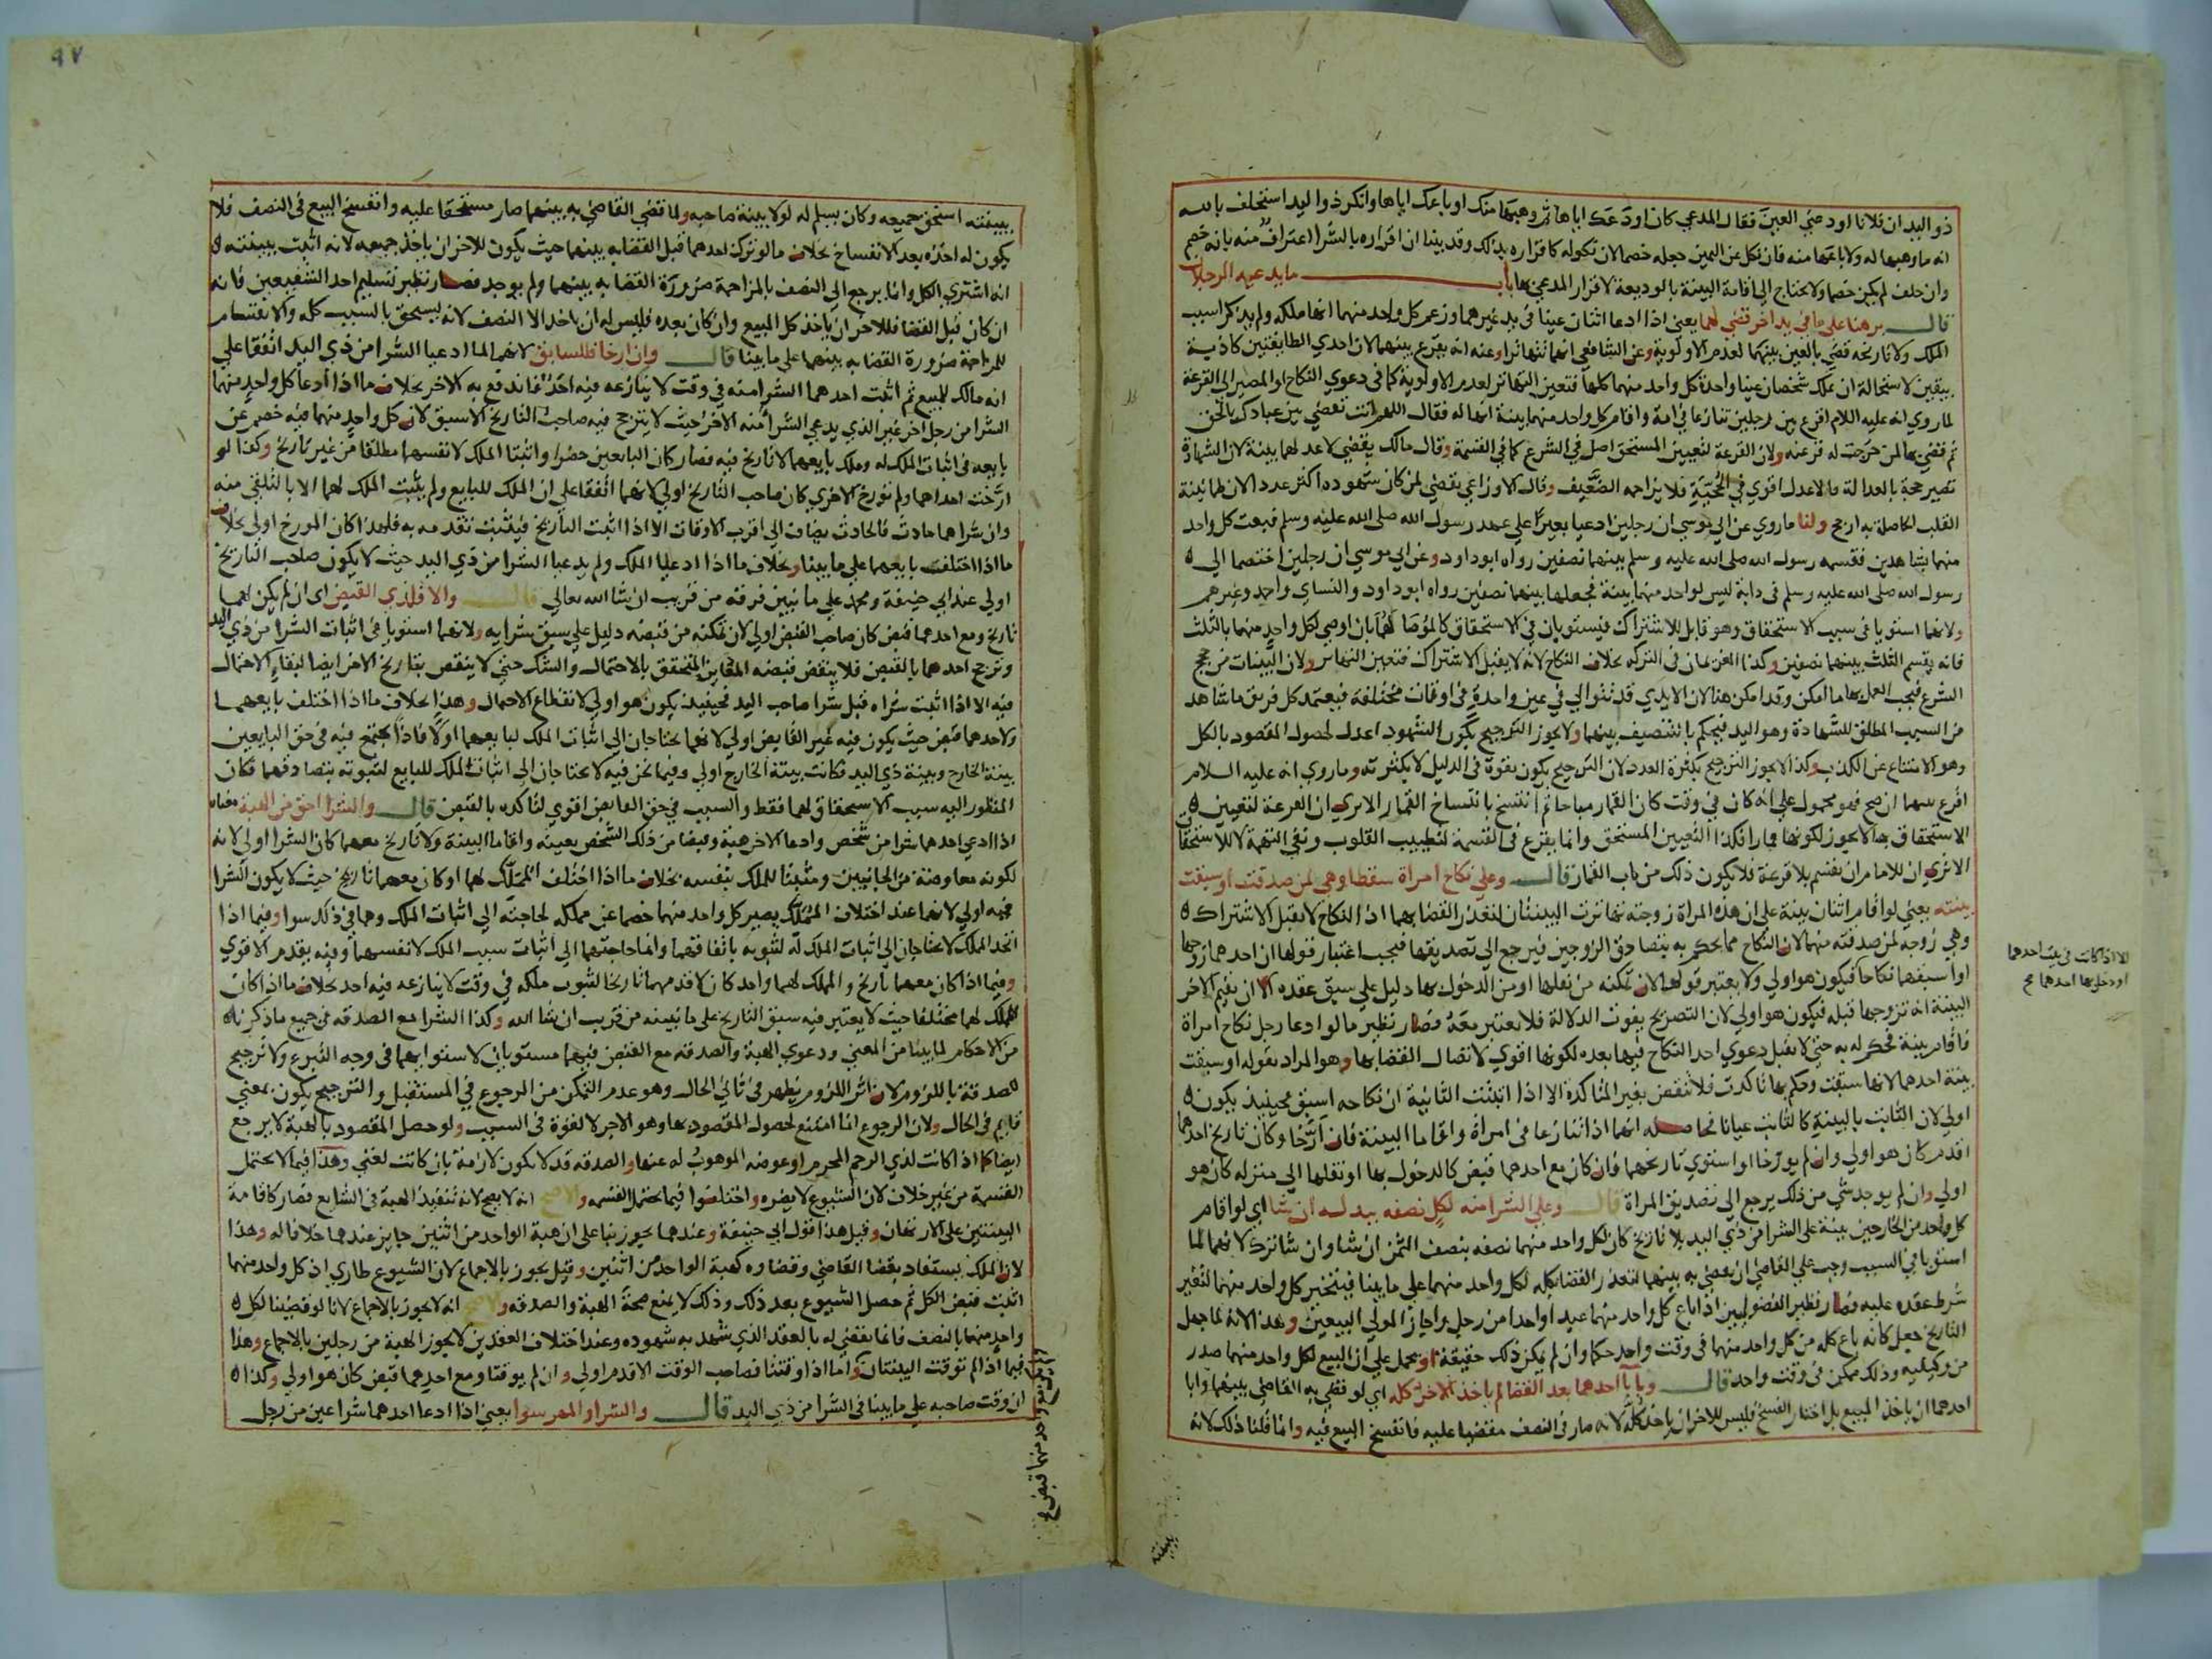 ذو اليد ان فلانا اودعني العين فقال المدعي كان اودعك اياها ثم وهبها منك او باعك اياها وانكر ذو اليد استحلف بالله
انه ما وهبها له ولا باعها منه فان نكل عن اليمين جعله خصما لان نكوله كاقراره بذلك وقد بينا ان اقراره بالشرا اعتراف منه بانه خصم
وان حلف لم يكن خصما ولا يحتاج الى اقامة البينة بالوديعة لاقرار المدعي بها باب ما يدعيه الرجلان
قال برهنا على ما في يد اخر قضي لهما يعني اذا ادعا اثنان عينا في يد غيرهما وزعم كل واحد منهما انها ملكه ولم يذكرا سبب
الملك ولا تاريخه قضي بالعين بينهما لعدم الاولوية وعن الشافعي انهما تهاترا وعنه انه يقرع بينهما لان احدي الطايفتين كاذبة
بيقين لاستحالة ان يملك شخصان عينا واحدة كل واحد منهما كلها فتعين التهاتر لعدم الاولوية كما في دعوي النكاح او المصير الى القرعة
لما روي انه عليه اللام اقرع بين رجلين تنازعا في امة واقام كل واحد منهما بينة انها له فقال اللهم انت تقضي بين عبادك بالحق
ثم قضي بها لمن خرجت له قرعته ولان القرعة لتعيين المستحق اصل في الشرع كما في القسمة وقال مالك يقضي لاعدلهما بينة لان الشهادة
تصير حجة بالعدالة فالاعدل اقوي في الحجية فلا يزاحمه الضعيف وقال الاوزاعي يقضي لمن كان شهوده اكثر عددا لان طمانينة
القلب الحاصلة به ارجح ولنا ما روي عن ابي موسي ان رجلين ادعيا بعيرا علي عهد رسول الله صلى الله عليه وسلم فبعث كل واحد
منهما بشاهدين فقسمه رسول الله صلى الله عليه وسلم بينهما نصفين رواه ابو داود وعن ابي موسي ان رجلين اختصما الي
رسول الله صلى الله عليه وسلم في دابة ليس لواحد منهما بينة فجعلها بينهما نصفين رواه ابو داود والنساي واحمد وغيرهم
ولانهما استويا في سبب الاستحقاق وهو قابل للاشتراك فيستويان في الاستحقاق كالموصا لهما بان اوصي لكل واحد منهما بالثلث
فانه يقسم الثلث بينهما نصفين وكذا الغريمان في التركه بخلاف النكاح لانه لا يقبل الاشتراك فتعين التهاتر ولان البينات من حجج
الشرع فيجب العمل بها ما امكن وقد امكن هنا لان الايدي قد تتوالي في عين واحدة في اوقات مختلفة فيعتمد كل فريق ما شاهد
من السبب المطلق للشهادة وهو اليد فيحكم بالتنصيف بينهما ولا يجوز الترجيح بكون الشهود اعدل لحصول المقصود بالكل
وهو الامتناع عن الكذب وكذا لا يجوز الترجيح بكثرة العدد لان الترجيح يكون بقوة في الدليل لا بكثرته وما روي انه عليه السلام
اقرع بينهما ان صح فهو محمول علي انه كان في وقت كان القمار مباحا ثم انتسخ بانتساخ القمار الا يري ان القرعة لتعيين
الاستحقاق بها لا يجوز لكونها قمارا فكذا لتعيين المستحق وانما يقرع في القسمة لتطييب القلوب ونفي التهمة لا للاستحقاق
الا تري ان للامام ان يقسم بلا قرعة فلا يكون ذلك من باب القمار قال وعلي نكاح امراة سقطا وهي لمن صدقت او سبقت
بينته يعني لو اقام اثنان بينة علي ان هذه المراة زوجته تهاترت البينتان لتعذر القضا بهما اذ النكاح لا يقبل الاشتراك
وهي زوجه لمن صدقته منهما لان النكاح مما يحكم به بتصادق الزوجين فيرجع الي تصديقها فيجب اعتبار قولها ان احدهما زوجها
او اسبقهما نكاحا فيكون هو اولي ولا يعتبر قولها لان تمكنه من نقلها او من الدخول بها دليل علي سبق عقده الا ان يقيم الاخر
البينة انه تزوجها قبله فيكون هو اولي لان التصريح يفوت الدلالة فلا يعتبر معه فصار نظير ما لو ادعا رجل نكاح امراة
فاقام بينة فحكم له به حتي لا يقبل دعوي احد النكاح فيها بعده لكونها اقوي لاتصال القضا بها وهو المراد بقوله او سبقت
بينة احدهما لانها سبقت وحكم بها تاكدت فلا تنقض بغير المتاكدة الا اذا اثبتت الثانية ان نكاحه اسبق فحينيذ يكون
اولي لان الثابت بالبينة كالثابت عيانا فحاصله انهما اذا تنازعا في امراة واقاما البينة فان ارخا وكان تاريخ احدهما
اقدم كان هو اولي وان لم يورخا او استوي تاريخهما فان كان مع احدهما قبض كالدخول بها او نقلها الي منزله كان هو
اولي وان لم يوجد شي من ذلك يرجع الي تصديق المراة قال وعلي الشرا منه لكل نصفه ببدله ان شا اي لو اقام
كل واحد من الخارجين بينة علي الشرا من ذي اليد بلا تاريخ كان لكل واحد منهما نصفه بنصف الثمن ان شا وان شا ترك لانهما لما
استويا في السبب وجب علي القاضي ان يقضي به بينهما لتعذر القضا بكله لكل واحد منهما علي ما بينا فيتخير كل واحد منهما لتغير
شرط عقده عليه فصار نظير الفضوليين اذا باع كل واحد منهما عبدا واحدا من رجل واجاز المولي البيعين وهذا لانه لما جعل
التاريخ جعل كانه باع كله من كل واحد منهما في وقت واحد حكما وان لم يكن ذلك حقيقة او يحمل علي ان البيع لكل واحد منهما صدر
من وكيليه وذلك ممكن في وقت واحد قال وبابا احدهما بعد القضا لم ياخذ الاخر كله اي لو قضي به القاضي بينهما وابا
احدهما ان ياخذ المبيع بل اختار الفسخ فليس للاخر ان ياخذ كله لانه صار في النصف مقضيا عليه فانفسخ البيع فيه وانما قلنا ذلك لانه
الا اذا كانت في بيت احدهما
او دخل بها احدهما صح
ببينته
٩٧
ببينته استحق جميعه وكان يسلم له لولا بينة صاحبه ولما قضي القاضي به بينهما صار مستحقا عليه وانفسخ البيع في النصف فلا
يكون له اخذه بعد الانفساخ بخلاف ما لو ترك احدهما قبل القضا به بينهما حيث يكون للاخر ان ياخذ جميعه لانه اثبت ببينته
انه اشتري الكل وانما يرجع الي النصف بالمزاحمة ضرورة القضا به بينهما ولم يوجد فصار نظير تسليم احد الشفيعين فانه
ان كان قبل القضا فللاخر ان ياخذ كل المبيع وان كان بعده فليس له ان ياخذ الا النصف لانه يستحق بالسبب كله والانقسام
للمزاحمة ضرورة القضا به بينهما علي ما بينا قال وان ارخا فللسابق لانهما لما ادعيا الشرا من ذي اليد اتفقا علي
انه مالك للمبيع ثم اثبت احدهما الشرا منه في وقت لا ينازعه فيه احد فاندفع به الاخر بخلاف ما اذا ادعا كل واحد منهما
الشرا من رجل اخر غير الذي يدعي الشرا منه الاخر حيث لا يترجح فيه صاحب التاريخ الاسبق لان كل واحد منهما فيه خصم عن
بايعه في اثبات الملك له وملك بايعهما لا تاريخ فيه فصار كان البايعين حضرا واثبتا الملك لانفسهما مطلقا من غير تاريخ وكذا لو
ارخت احداهما ولم تورخ الاخري كان صاحب التاريخ اولي لانهما اتفقا علي ان الملك للبايع ولم يثبت الملك لهما الا بالتلقي منه
وان شراهما حادث فالحادث يضاف الي اقرب الاوقات الا اذا اثبت التاريخ فيثبت تقدمه به فلهذا كان المورخ اولي بخلاف
ما اذا اختلفت بايعهما علي ما بينا وبخلاف ما اذا ادعيا الملك ولم يدعيا الشرا من ذي اليد حيث لا يكون صاحب التاريخ
اولي عند ابي حنيفة ومحمد علي ما نبين فرقه من قريب ان شا الله تعالي قال والا فلذي القبض اي ان لم يكن لهما
تاريخ ومع احدهما قبض كان صاحب القبض اولي لان تمكنه من قبضه دليل علي سبق شرايه ولانهما استويا في اثبات الشرا من ذي اليد
وترجح احدهما بالقبض فلا ينقض قبضه المعاين المتحقق بالاحتمال والشك حتي لا ينقض بتاريخ الاخر ايضا لبقاء الاحتمال
فيه الا اذا اثبت شراه قبل شرا صاحب اليد فحينيذ يكون هو اولي لانقطاع الاحتمال وهذا بخلاف ما اذا اختلف بايعهما
ولاحدهما قبض حيث يكون فيه غير القابض اولي لانهما يحتاجان الي اثبات الملك لبايعهما اولا فاذا اجتمع فيه في حق البايعين
بينة الخارج وبينة ذي اليد فكانت بينة الخارج اولي وفيما نحن فيه لا يحتاجان الي اثبات الملك للبايع لثبوته بتصادقهما فكان
المنظور اليه سبب الاستحقاق لهما فقط والسبب في حق القابض اقوي لتاكده بالقبض قال والشرا احق من الهبة معناه
اذا ادعي احدهما شرا من شخص وادعا الاخر هبة وقبضا من ذلك الشخص بعينه واقاما البينة ولا تاريخ معهما كان الشرا اولي لانه
لكونه معاوضة من الجانبين ومثبتا للملك بنفسه بخلاف ما اذا اختلف المملك لهما او كان معهما تاريخ حيث لا يكون الشرا
فيه اولي لانهما عند اختلاف المملك يصير كل واحد منهما خصما عن مملكه لحاجته الي اثبات الملك وهما في ذلك سوا وفيما اذا
اتحد المملك لا يحتاجان الي اثبات الملك له لثبوته باتفاقهما وانما حاجتهما الي اثبات سبب الملك لانفسهما وفيه يقدم الاقوي
وفيما اذا كان معهما تاريخ والمملك لهما واحد كان لاقدمهما تاريخا لثبوت ملكه في وقت لا ينازعه فيه احد بخلاف ما اذا كان
المملك لهما مختلفا حيث لا يعتبر فيه سبق التاريخ علي ما نبينه من قريب ان شا الله وكذا الشرا مع الصدقه في جميع ما ذكرنا
من الاحكام لما بينا من المعني ودعوي الهبة والصدقه مع القبض فيهما مستويان لاستوايهما في وجه التبرع ولا ترجيح
للصدقة باللزوم لان اثر اللزوم يظهر في ثاني الحال وهو عدم التمكن من الرجوع في المستقبل والترجيح يكون بمعني
قايم في الحال ولان الرجوع انما امتنع لحصول المقصود بها وهو الاجر لا لقوة في السبب ولو حصل المقصود بالهبة لا يرجع
ايضا كما اذا كانت لذي الرحم المحرم او عوضه الموهوب له عنها والصدقه قد لا تكون لازمة بان كانت لغني وهذا فيما لا يحتمل
القسمة من غير خلاف لان الشيوع لا يضره واختلفوا فيما يحتمل القسمه والاصح انه لا يصح لانه تنفيذ الهبة في الشايع فصار كاقامة
البينتين علي الارتهان وقيل هذا قول ابي حنيفة وعندهما يجوز بنا علي ان هبة الواحد من اثنين جايز عندهما خلافا له وهذا
لان الملك يستفاد بقضا القاضي وقضاوه كهبة الواحد من اثنين وقيل يجوز بالاجماع لان الشيوع طاري اذ كل واحد منهما
اثبت قبض الكل ثم حصل الشيوع بعد ذلك وذلك لا يمنع صحة الهبة والصدقه والاصح انه لا يجوز بالاجماع لانا لو قضينا لكل
واحد منهما بالنصف فانما نقضي له بالعقد الذي شهد به شهوده وعند اختلاف العقدين لا يجوز الهبة من رجلين بالاجماع وهذا
فيما اذا لم توقت البينتان واما اذا وقتتا فصاحب الوقت الاقدم اولي وان لم يوقتا ومع احدهما قبض كان هو اولي وكذا
ان وقت صاحبه علي ما بينا في الشرا من ذي اليد قال والشرا والمهر سوا يعني اذا ادعا احدهما شرا عين من رجل